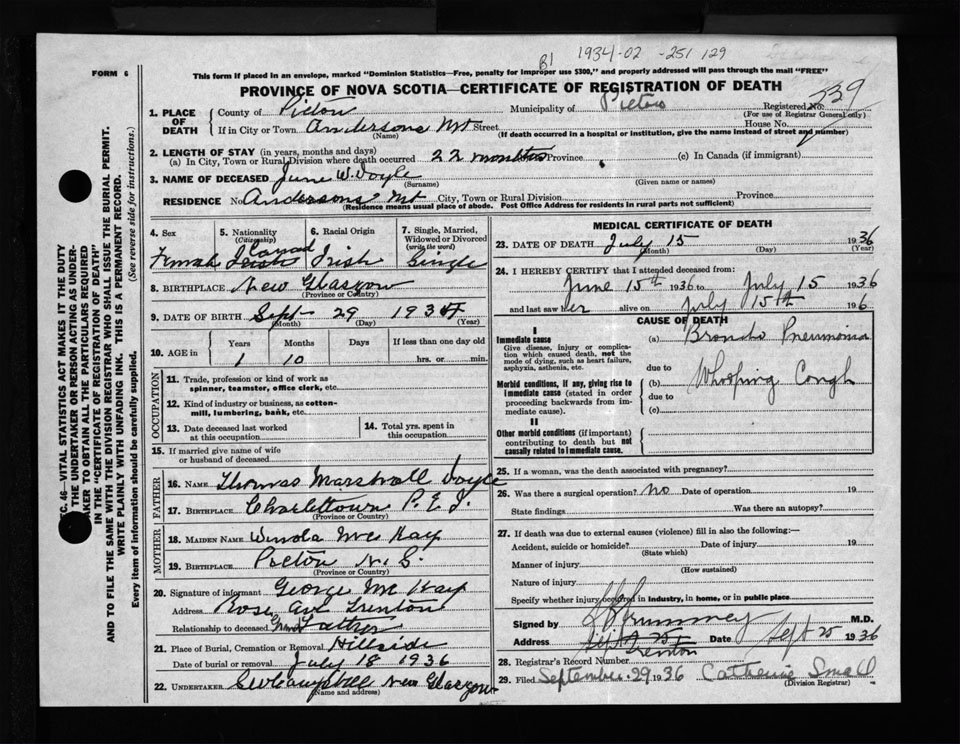 B1 1934-02-251129
FORM 6
This form if placed in an envelope, marked "Dominion Statistics—Free, penalty for improper use $300," and properly addressed will pass through the mail "FREE"
PROVINCE OF NOVA SCOTIA—CERTIFICATE OF REGISTRATION OF DEATH
339
1. PLACE OF DEATH County of Pictou Municipality of Pictou Registered No.
(For use of Registrar General only)
If in City or Town Andersons Mt Street House No.
(Name) (If death occurred in a hospital or institution, give the name instead of street and number)
2. LENGTH OF STAY (in years, months and days)
(a) In City, Town or Rural Division where death occurred 22 months Province (c) In Canada (if immigrant)
3. NAME OF DECEASED June W. Doyle
(Surname) (Given name or names)
RESIDENCE No. Andersons Mt City, Town or Rural Division Province
(Residence means usual place of abode. Post Office Address for residents in rural parts not sufficient)
4. Sex 5. Nationality (Citizenship) 6. Racial Origin 7. Single, Married, Widowed or Divorced (write the word)
Female Canad Irish Irish Single
8. BIRTHPLACE New Glasgow
(Province or Country)
9. DATE OF BIRTH Sept 29 1934
(Month) (Day) (Year)
10. AGE in Years Months Days If less than one day old
1 10 hrs. or min.
OCCUPATION
11. Trade, profession or kind of work as spinner, teamster, office clerk, etc.
12. Kind of industry or business, as cotton-mill, lumbering, bank, etc.
13. Date deceased last worked at this occupation
14. Total yrs. spent in this occupation
15. If married give name of wife or husband of deceased
FATHER
16. NAME Thomas Marshall Doyle
17. BIRTHPLACE Charlottown P. E. I.
(Province or Country)
MOTHER
18. MAIDEN NAME Winola Mc Kay
19. BIRTHPLACE Pictou N. S.
(Province or Country)
20. Signature of informant George Mc Kay
Address Rose Ave Trenton
Relationship to deceased Grand Father
21. Place of Burial, Cremation or Removal Hillside
Date of burial or removal July 18 1936
22. UNDERTAKER Campbell New Glasgow
(Name and address)
MEDICAL CERTIFICATE OF DEATH
23. DATE OF DEATH July 15 1936
(Month) (Day) (Year)
24. I HEREBY CERTIFY that I attended deceased from
June 15th 1936 to July 15 1936
and last saw her alive on July 15th 1936
CAUSE OF DEATH
I
Immediate cause
Give disease, injury or complication which caused death, not the mode of dying, such as heart failure, asphyxia, asthenia, etc.
(a) Broncho Pneumonia
due to
Morbid conditions, if any, giving rise to immediate cause (stated in order proceeding backwards from immediate cause).
(b) Whooping Cough
due to
(c)
II
Other morbid conditions (if important) contributing to death but not causally related to immediate cause.
25. If a woman, was the death associated with pregnancy?
26. Was there a surgical operation? no Date of operation 19
State findings Was there an autopsy?
27. If death was due to external causes (violence) fill in also the following:—
Accident, suicide or homicide? Date of injury 19
(State which)
Manner of injury
(How sustained)
Nature of injury
Specify whether injury occurred in industry, in home, or in public place
Signed by M.D.
Address Trenton Date Sept 25 1936
28. Registrar's Record Number
29. Filed September 29 1936 Catherine Small
(Division Registrar)
SEC. 46—VITAL STATISTICS ACT MAKES IT THE DUTY
OF THE UNDERTAKER OR PERSON ACTING AS UNDERTAKER TO OBTAIN ALL THE PARTICULARS REQUIRED
IN THE "CERTIFICATE OF REGISTRATION OF DEATH"
AND TO FILE THE SAME WITH THE DIVISION REGISTRAR WHO SHALL ISSUE THE BURIAL PERMIT.
WRITE PLAINLY WITH UNFADING INK. THIS IS A PERMANENT RECORD.
Every item of information should be carefully supplied. (See reverse side for instructions.)